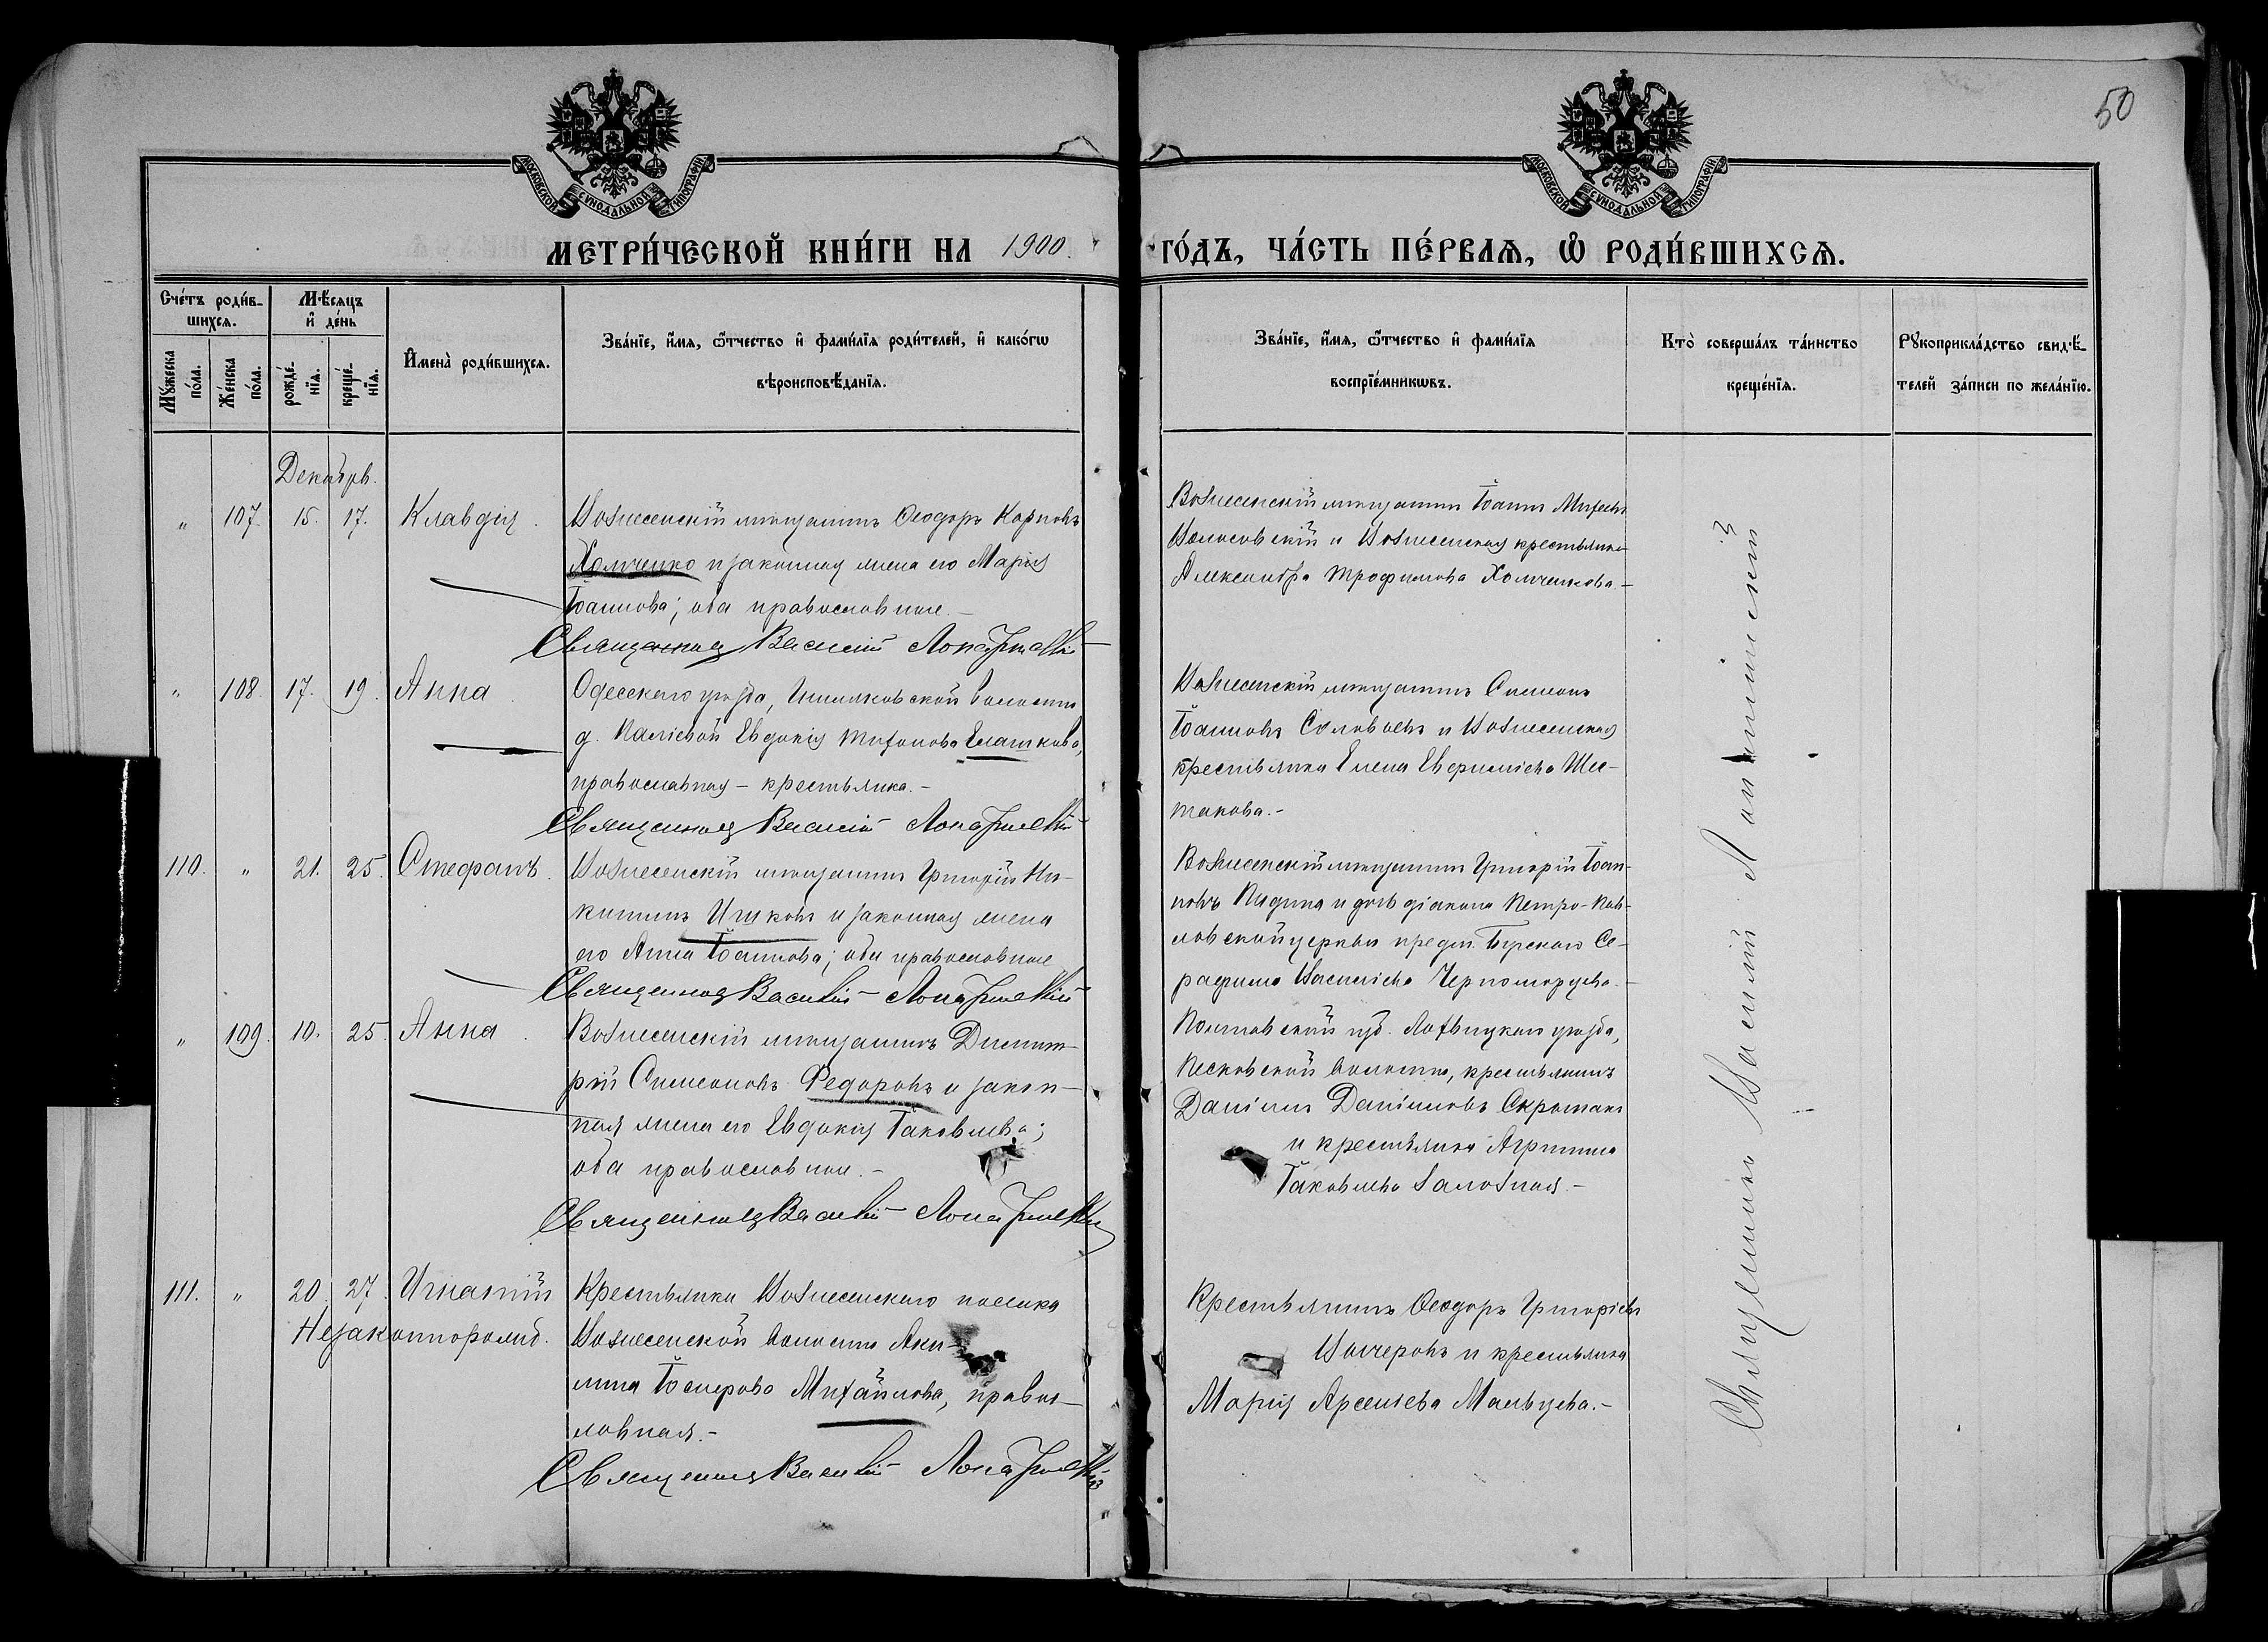 50
МОСКОВСКОЙ СУНОДАЛЬНОЙ ТИПОГРАФІИ
МОСКОВСКОЙ СУНОДАЛЬНОЙ ТИПОГРАФІИ
МЕТРИ́ЧЕСКОЙ КНИ́ГИ НА 1900. ГО́ДЪ, ЧА́СТЬ ПЕ́РВАѦ, Ѡ РОДИ́ВШИХСѦ.
Сче́тъ роди́в-
шихсѧ.
Мꙋжеска по́ла.
Же́нска по́ла.
Мѣ́сѧцъ
и҆ де́нь
рожде́-
нїѧ.
креще́-
нїѧ.
И҆мена̀ роди́вшихсѧ.
Зва́нїе, и҆́мѧ, ѻ҆́тчество и҆ фами́лїѧ роди́телей, и҆ како́гѡ
вѣроисповѣ́данїѧ.
Зва́нїе, и҆́мѧ, ѻ҆́тчество и҆ фами́лїѧ
воспрїе́мникѡвъ.
Кто̀ соверша́лъ та́инство
креще́нїѧ.
Рꙋкоприкла́дство свидѣ́-
телей за́писи по жела́нїю.
Декабрь.
" 107. 15. 17. Клавдія.
Вознесенскій мѣщанинъ Ѳеодоръ Карповъ
Хомченко и законная жена его Марія
Іоаннова; оба православные.-
Священникъ Василій
Вознесенскій мѣщанинъ Іоаннъ
и Вознесенская крестьянка
Александра Трофимова Хомченкова.-
" 108. 17. 19. Анна.
Одесскаго уѣзда, волости
д. Евдокія Тихонова
православная - крестьянка.-
Священникъ Василій
Вознесенскій мѣщанинъ Симеонъ
Іоанновъ Соловьевъ и Вознесенская
крестьянка Елена Шес-
такова.-
110. " 21. 25. Стефанъ.
Вознесенскій мѣщанинъ Григорій Ни-
китинъ и законная жена
его Анна Іоаннова; оба православные
Священникъ Василій
Вознесенскій мѣщанинъ Григорій Іоан-
новъ и дочь діакона Петро-Пав-
ловской церкви Се-
рафима Васильева Черноморцева.-
" 109. 10. 25. Анна.
Вознесенскій мѣщанинъ Димит-
рій Симеоновъ Федоровъ и закон-
ная жена его Евдокія Іаковлева;
оба православные.-
Священникъ Василій
Полтавской губ. Лохвицкаго уѣзда,
Песковской волости, крестьянинъ
Даніилъ Данииловъ
и крестьянка Агриппина
Іаковлева
111. " 20. 27. Игнатій
Незаконнорожд.
Крестьянка Вознесенскаго поселка
Вознесенской волости Аки-
лина Михайлова, правос-
лавная.-
Священникъ Василій
Крестьянинъ Ѳеодоръ Григорьевъ
и крестьянка
Марія Арсеньева Мальцева.-
Священникъ Василій